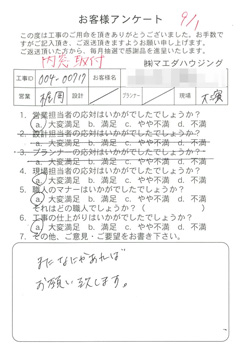 お客様アンケート 9/1
この度は工事のご用命を頂きありがとうございました。お手数で
すがご記入頂き、ご返送頂きますようお願い申し上げます。
ご返送頂いた方から、毎月抽選で感謝品を進呈いたします。
内窓取付 ㈱マエダハウジング
工事ID 004-00719 お客様名
営業 梶岡 設計 プランナー 現場
1. 営業担当者の応対はいかがでしたでしょうか?
a. 大変満足 b. 満足 c. やや不満 d. 不満
2. 設計担当者の応対はいかがでしたでしょうか?
a. 大変満足 b. 満足 c. やや不満 d. 不満
3. プランナーの応対はいかがでしたでしょうか?
a. 大変満足 b. 満足 c. やや不満 d. 不満
4. 現場担当者の応対はいかがでしたでしょうか?
a. 大変満足 b. 満足 c. やや不満 d. 不満
5. 職人のマナーはいかがでしたでしょうか?
a. 大変満足 b. 満足 c. やや不満 d. 不満
それはどの職人でしょうか?( )
6. 工事の仕上がりはいかがでしたでしょうか?
a. 大変満足 b. 満足 c. やや不満 d. 不満
7. その他、ご意見・ご要望をお書き下さい。
またなにかあれば
お願い致します。